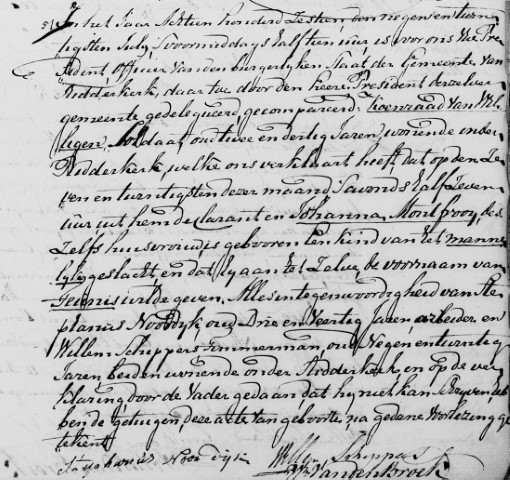 In het Jaar Achtien honderd Zestien den negen en twin-
tigsten July, s'voormiddags half tien uur is voor ons Vice Pre-
sident Officier van den burgerlyken Staat der Gemeente van
Ridderkerk, daar toe door den heere President derzelver
gemeente gedelegueerd gecompareerd: Koenraad van
soldaat, oud twee en dertig Jaren, wonende onder
Ridderkerk, welke ons verklaart heeft, dat op den Ze-
ven en twintigsten dezer maand savonds half Zeven
uur uit hem declarant en Johanna Montfrooy, des
Zelfs huisvrouw, is gebooren een kind van het manne-
lyk geslacht, en dat hy aan het Zelve de voornaam van
Teunis wilde geven, Alles in tegenwoordigheid van Ste-
phanus Noordyk, oud Drie en Veertig Jaren, arbeider en
Willem Schippers timmerman, oud Negen en twintig
Jaren beiden wonende onder Ridderkerk, en op de ver-
klaring door de Vader gedaan dat hy niet kan Schryven heb-
ben de getuigen deze acte van geboorte, na gedane voorlezing ge-
tekent
Stephanus Noordyk
VandenBroek